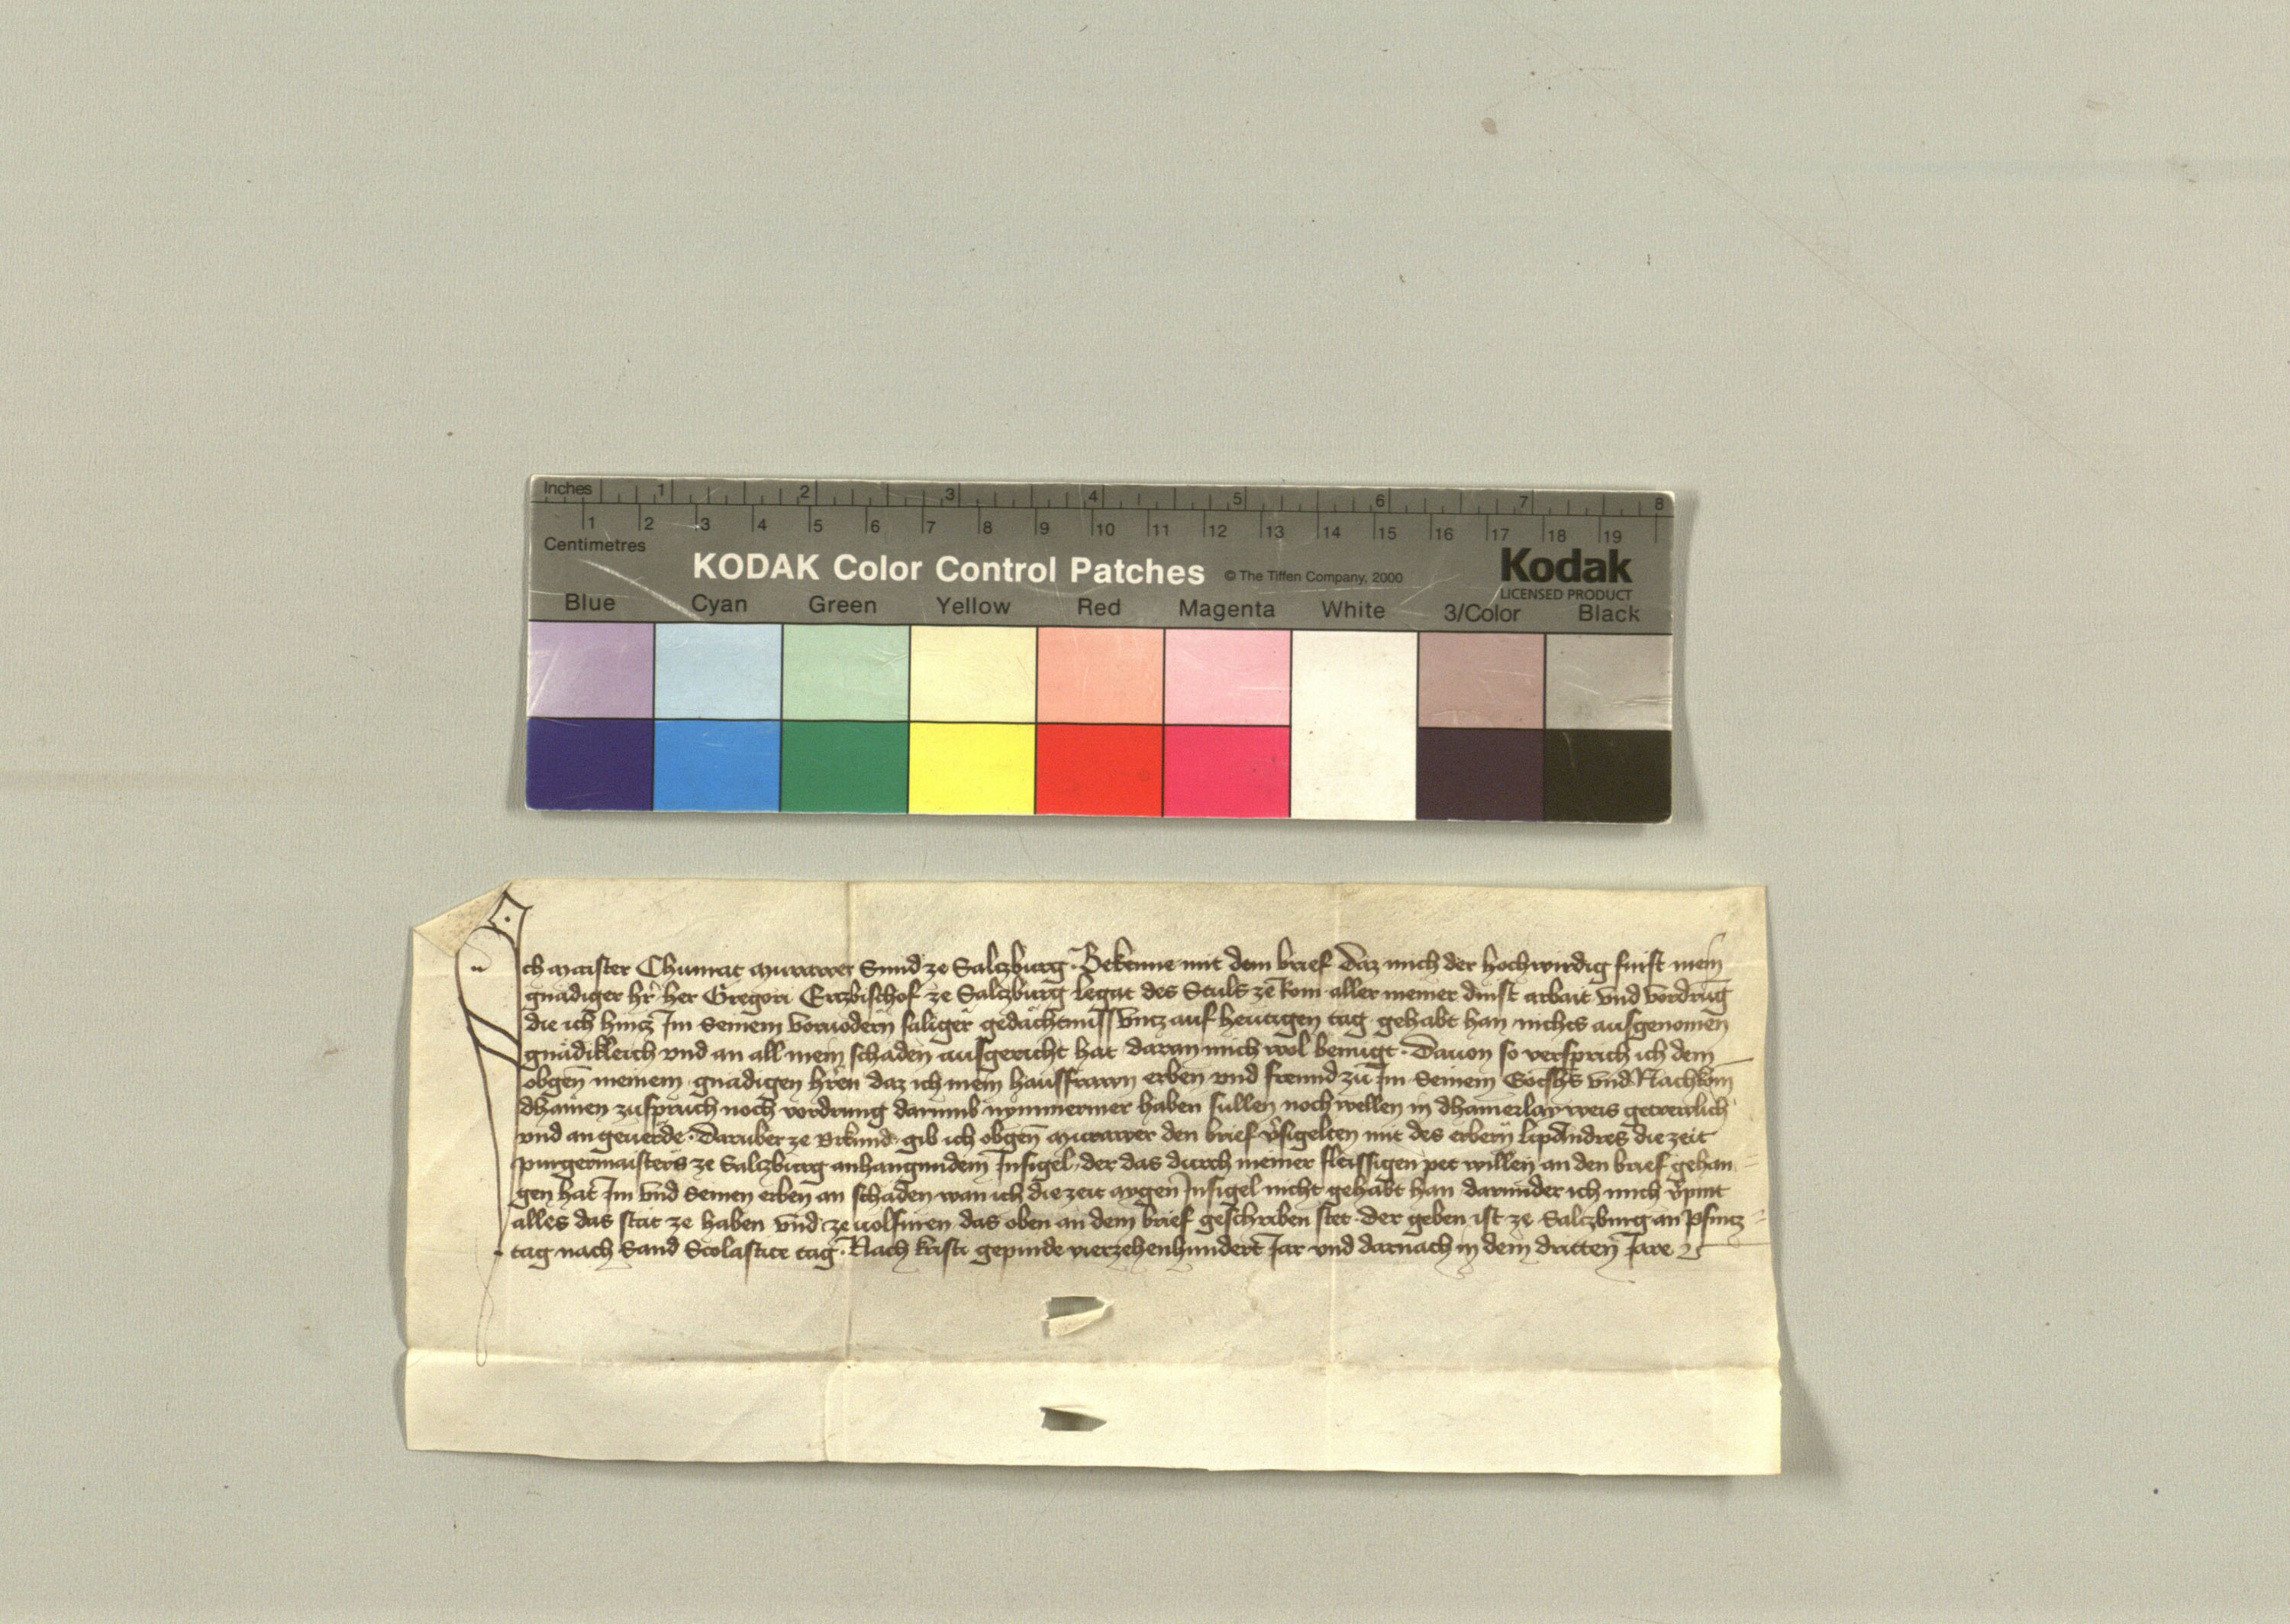 Inches 1 2 3 4 5 6 7 8
1 2 3 4 5 6 7 8 9 10 11 12 13 14 15 16 17 18 19
Centimetres
KODAK Color Control Patches © The Tiffen Company, 2000 Kodak
LICENSED PRODUCT
Blue Cyan Green Yellow Red Magenta White 3/Color Black
Ich maister Chunrat murawer ze Salczburg · Bekenne mit dem brief daz mich der hochwirdig furst mein
gnadiger hr̄ her Gregori Erczbischof ze Salczburg legat des Stuls ze Rom aller meiner dinst arbait vnd vordrūg
die ich hincz Im Seinem voruodern saliger gedachtnuss vncz auf hewtigen tag gehabt han nichts ausgenomen
gnadikleich vnd an all mein schaden ausgericht hat daran mich wol benugt · Dauon so versprich ich dem
obgen̄ meinem gnadigen hr̄en daz ich mein hausfrawn erben vnd frewnd zu Im Seinem Gotshs vnd Nachkōm
dhainen zuspruch noch vordrung darumb nymmermer haben sullen noch wellen in dhainerlay weis getrewlich
vnd an geuerde · Daruber ze vrkund gib ich obgen̄ murawer den brief v̄sigelten mit des erbern die zeit
purgermaisters ze Salczburg anhangundem Insigel der das durch meiner fleissigen pet willen an den brief gehan
gen hat Im vnd Seinen erben an schaden wan ich die zeit aygen Insigel nicht gehabt han darunder ich mich v̄pint
alles das stat ze haben vnd ze uolfuren das oben an dem brief geschriben stet der geben ist ze Salczburg an Pfincz
tag nach Sand Scolastice tag · Nach kristi gepurde vierzehenhundert Jar vnd darnach in dem dritten Jare